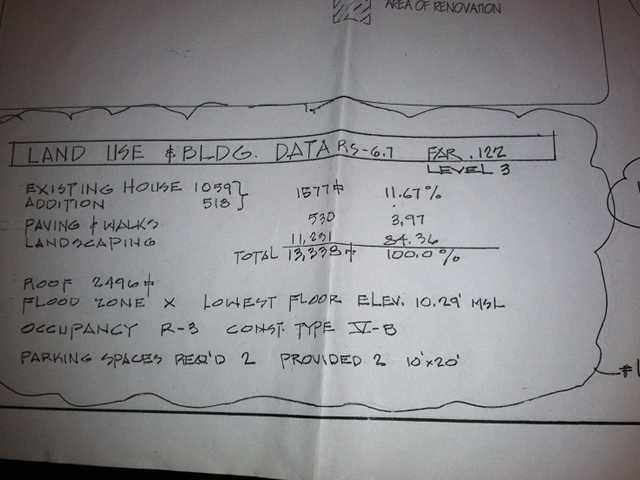 AREA OF RENOVATION
LAND USE & BLDG. DATA RS-6.7 FAR .122
LEVEL 3
EXISTING HOUSE 1059 1577⌽ 11.67%
ADDITION 518
PAVING & WALKS 530 3.97
LANDSCAPING 11,231 84.36
TOTAL 13,338⌽ 100.0%
ROOF 2496⌽
FLOOD ZONE X LOWEST FLOOR ELEV. 10.29' MSL
OCCUPANCY R-3 CONST. TYPE V-B
PARKING SPACES REQ'D 2 PROVIDED 2 10'x20'